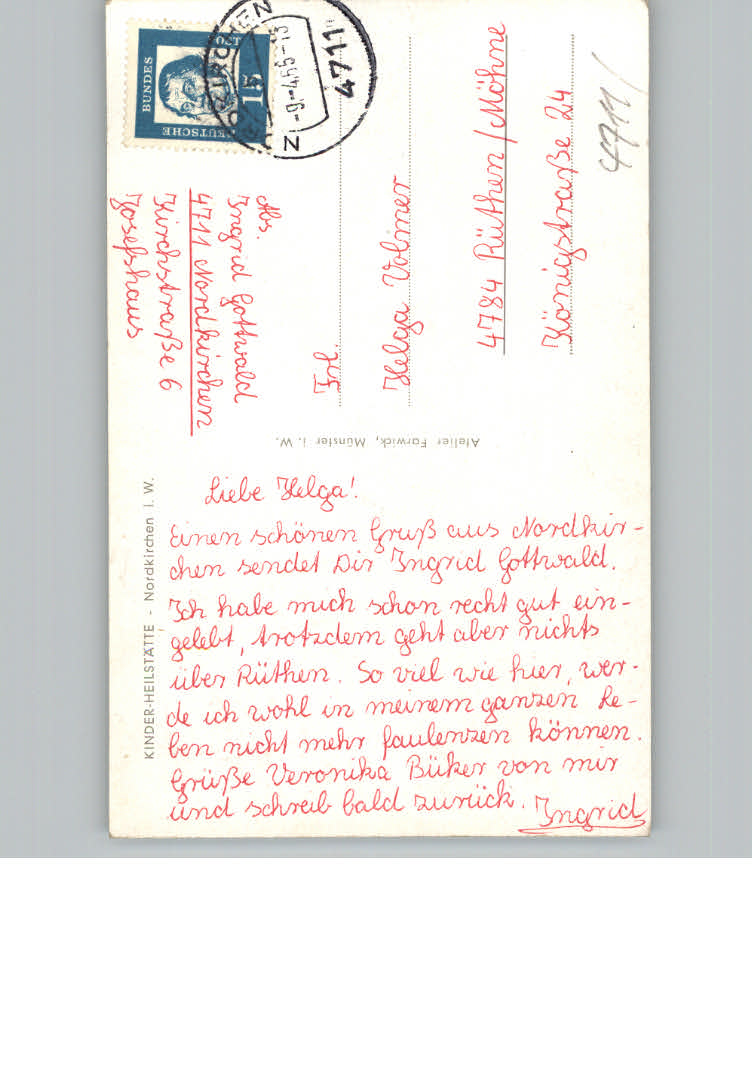 DEUTSCHE
BUNDES
POST
15
NORDKIRCHEN
4711
4711/
Abs.
Ingrid Gottwald
4711 Nordkirchen
Kirchstraße 6
Josefshaus
Frl.
Helga Volmer
4784 Rüthen/Möhne
Königstraße 24
Atelier Farwick, Münster i. W.
KINDER-HEILSTÄTTE - Nordkirchen i. W.
Liebe Helga!
Einen schönen Gruß aus Nordkir-
chen sendet Dir Ingrid Gottwald.
Ich habe mich schon recht gut ein-
gelebt, trotzdem geht aber nichts
über Rüthen. So viel wie hier, wer-
de ich wohl in meinem ganzen Le-
ben nicht mehr faulenzen können.
Grüße Veronika Büker von mir
und schreib bald zurück. Ingrid